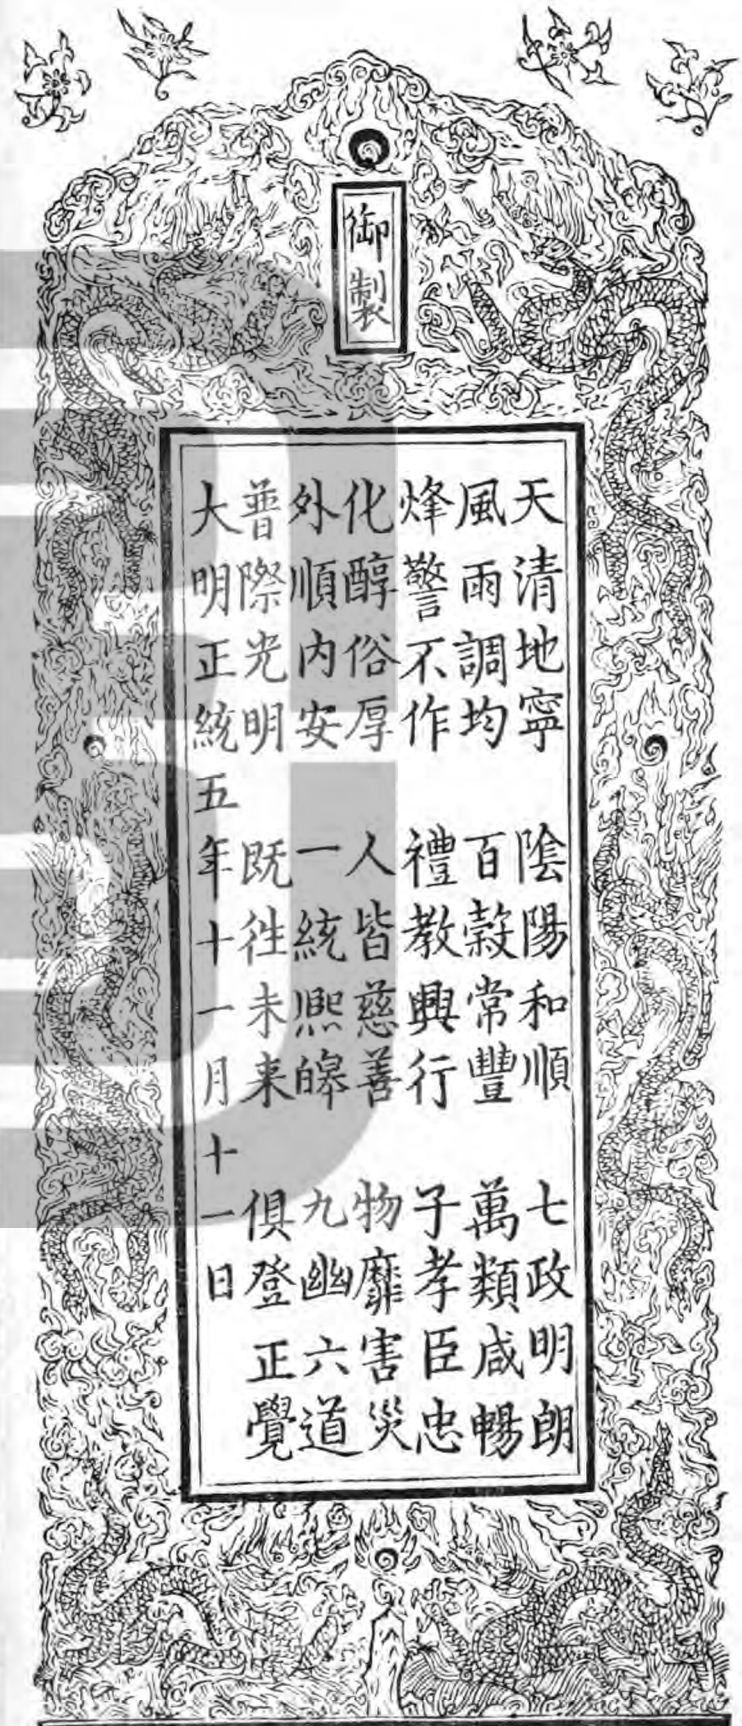 御製
天清地寧 陰陽和順 七政明朗
風雨調均 百穀常豐 萬類咸暢
烽警不作 禮教興行 子孝臣忠
化醇俗厚 人皆慈善 物靡害災
外順内安 一統熈皞 九幽六道
普際光明 既徃未来 俱登正覺
大明正統五年十一月十一日